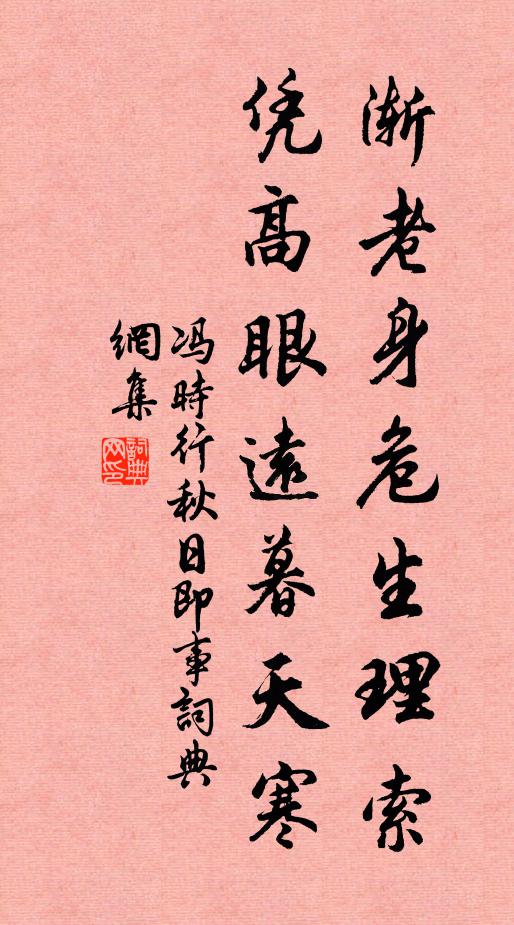 渐老身危生理索
凭高眼遠暮天寒
冯時行秋日即事詞典
網集
詞典
网印